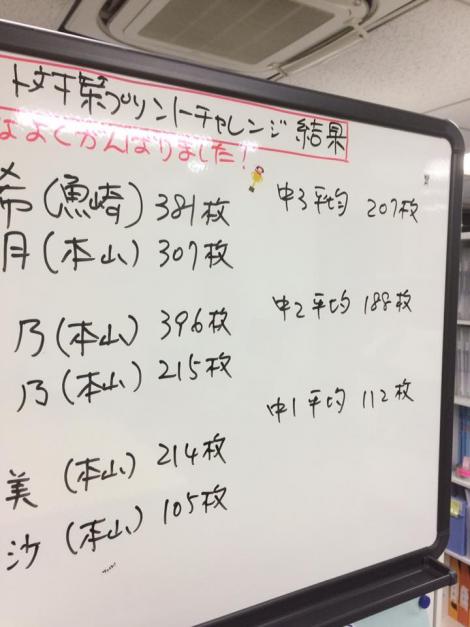 ト対策プリントチャレンジ結果
なよくがんばりました!
希(魚崎) 381枚
月(本山) 307枚
乃(本山) 396枚
乃(本山) 215枚
美(本山) 214枚
沙(本山) 105枚
中3平均 207枚
中2平均 188枚
中1平均 112枚